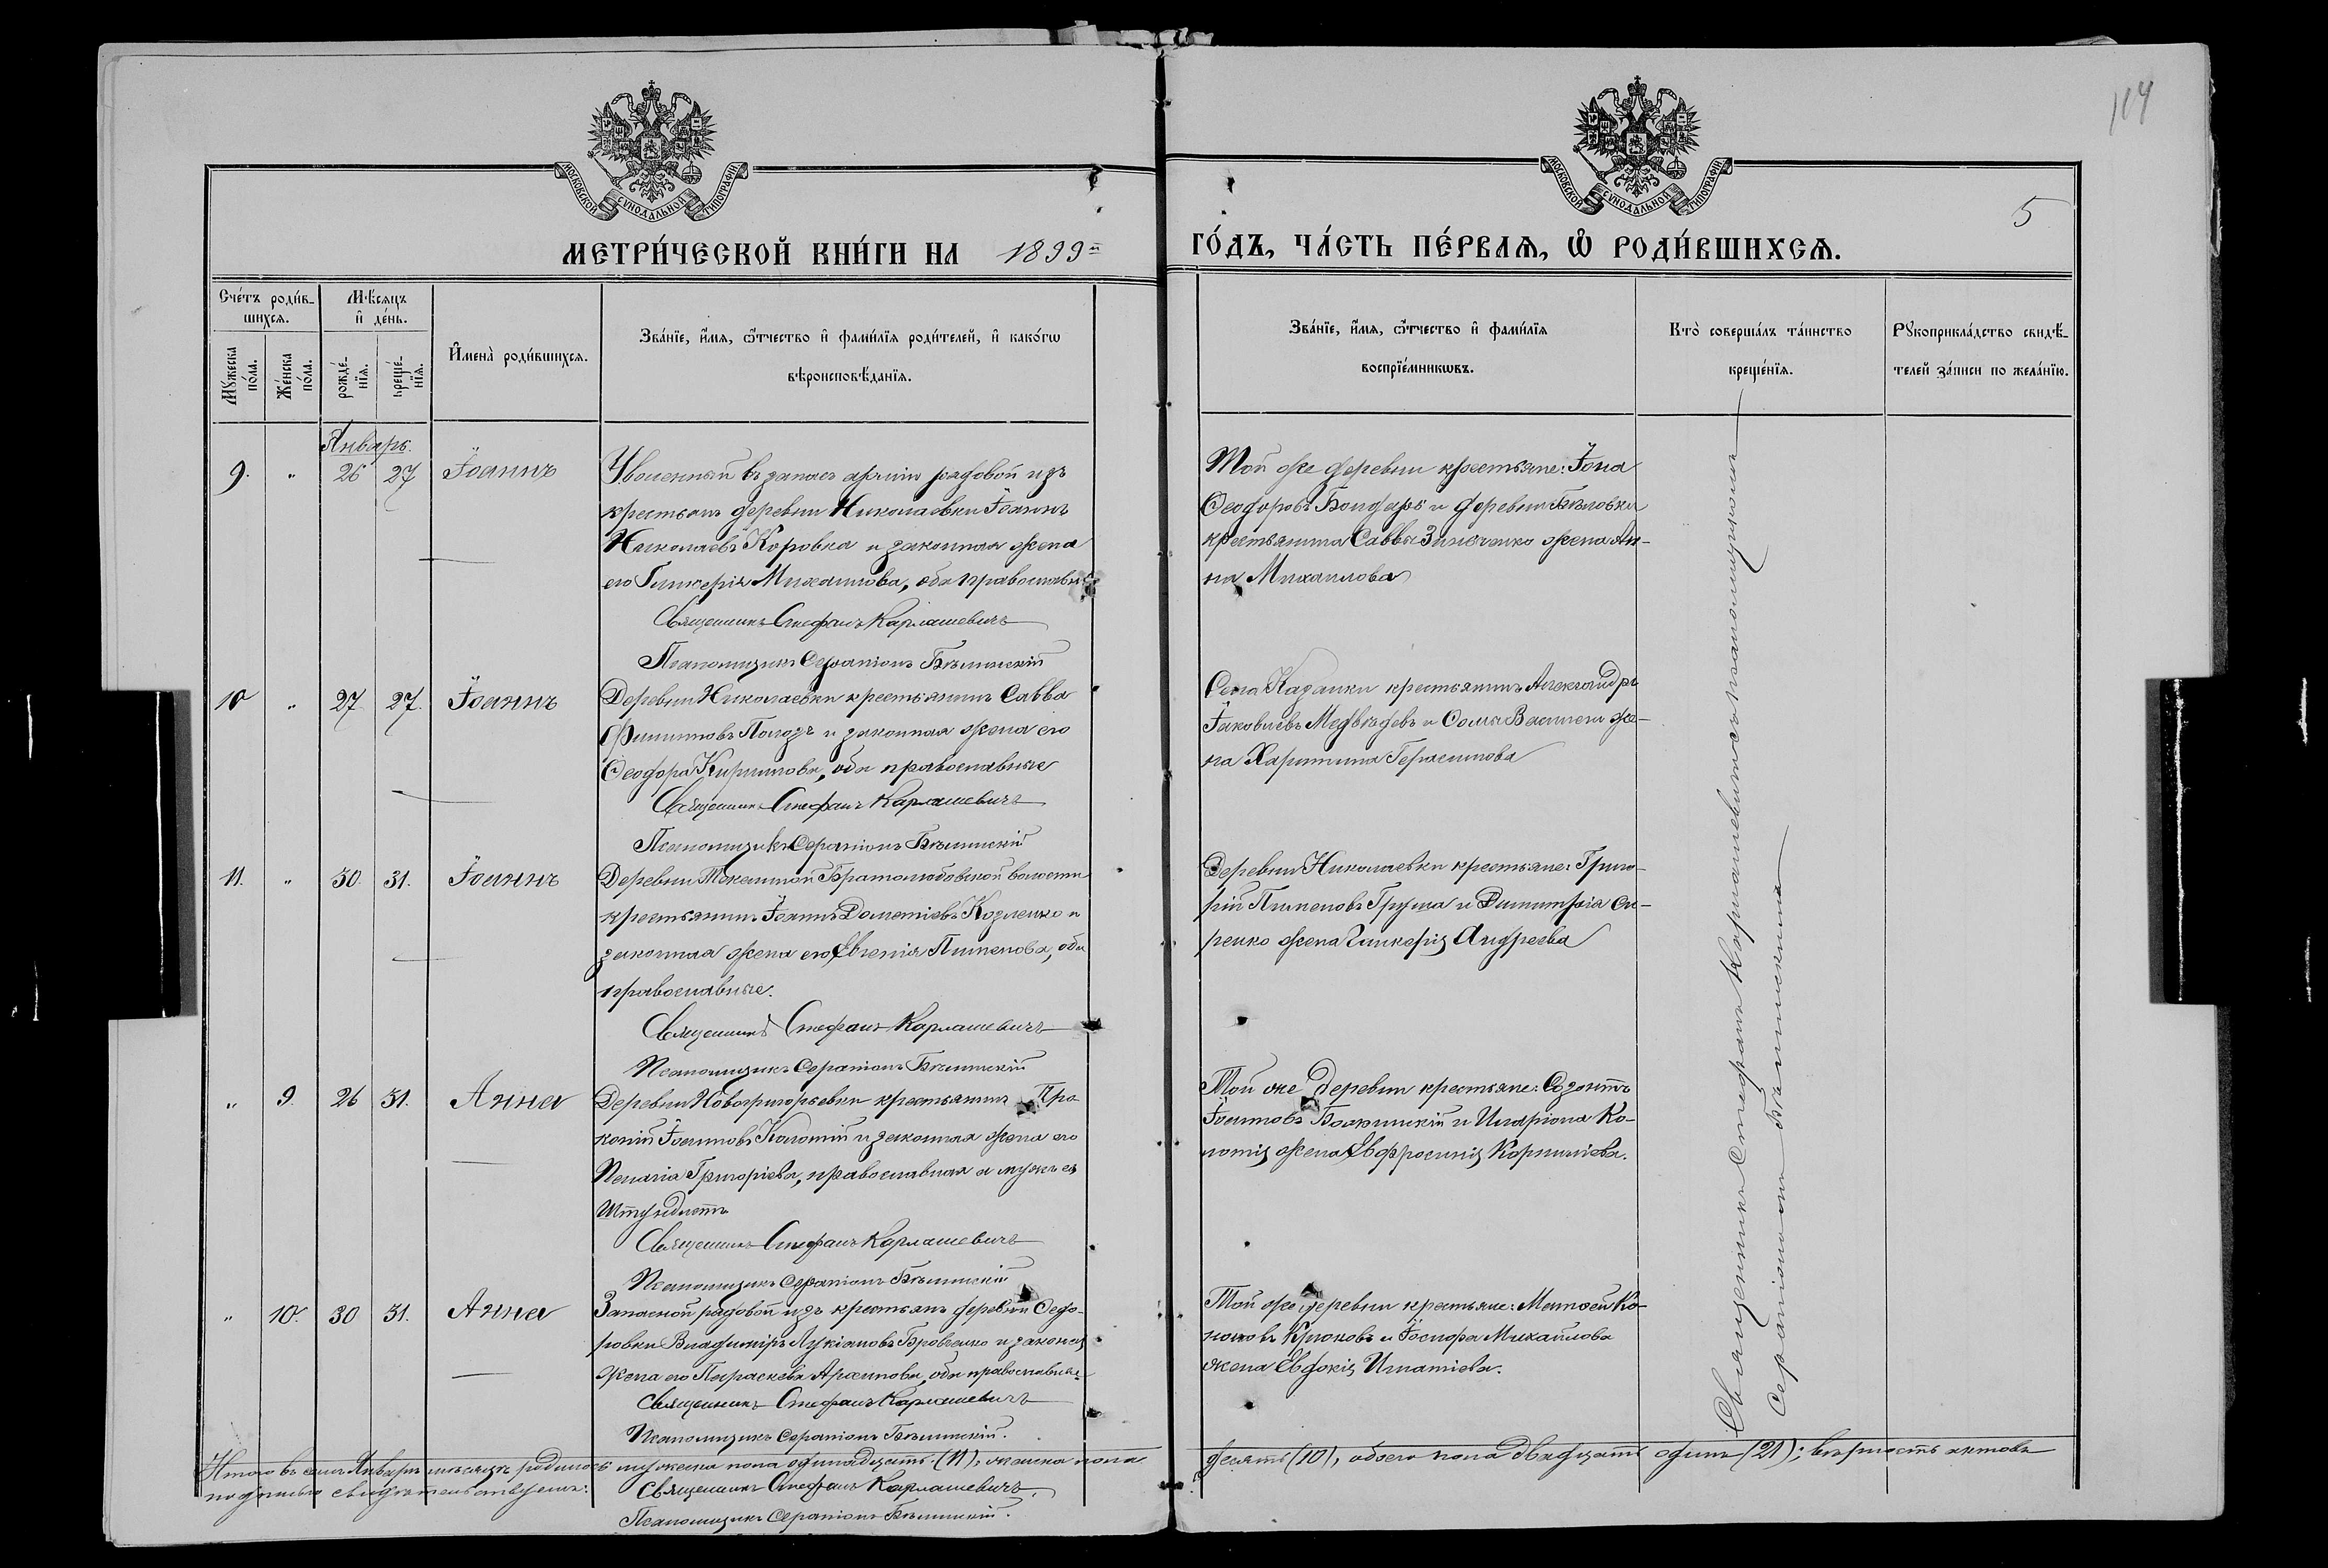 114
МОСКОВСКОЙ СѴНОДАЛЬНОЙ ТИПОГРАФІИ
МОСКОВСКОЙ СѴНОДАЛЬНОЙ ТИПОГРАФІИ
5
МЕТРИ́ЧЕСКОЙ КНИ́ГИ НА 1899й
ГО́ДЪ, ЧА́СТЬ ПЕ́РВАѦ, Ѡ РОДИ́ВШИХСѦ.
Сче́тъ роди́в-
шихсѧ.
Мѣ́сяцъ
и де́нь.
Мꙋ́жеска
по́ла.
Же́нска
по́ла.
рожде́-
нїѧ.
креще́-
нїѧ.
Имена̀ роди́вшихсѧ.
Зва́нїе, и́мѧ, ѻ́тчество и фами́лїѧ роди́телей, и како́гѡ
вѣроисповѣ́данїѧ.
Зва́нїе, и́мѧ, ѻ́тчество и фами́лїѧ
воспрїе́мникѡвъ.
Кто̀ соверша́лъ та́инство
креще́нїѧ.
Рꙋкоприкла́дство свидѣ́-
телей за́писи по жела́нїю.
Январь.
9. " 26 27 Іоаннъ
Уволенный въ запасъ арміи рядовой изъ
крестьянъ деревни Николаевки Іоаннъ
Николаевъ Коровка и законная жена
его Гликерія Михаилова, оба православные
Священникъ Стефанъ Карлашевичъ
Псаломщикъ Серапіонъ Бѣлинскій
Той же деревни крестьяне: Іона
Ѳеодоровъ Бондарь и деревни Бѣловки
крестьянина Саввы Зинченко жена Ан-
на Михаилова
10 " 27. 27. Іоаннъ
Деревни Николаевки крестьянинъ Савва
Филипповъ Полозъ и законная жена его
Ѳеодора Кириллова, оба православные
Священникъ Стефанъ Карлашевичъ
Псаломщикъ Серапіонъ Бѣлинскій
Села Казанки крестьянинъ Александръ
Іаковлевъ Медвѣдевъ и Сомы Василеги же-
на Харитина Герасимова
11. " 30. 31. Іоаннъ
Деревни Братолюбовской волости
крестьянинъ Іоаннъ Дометіевъ Козленко и
законная жена его Евгенія Пименова, оба
православные.
Священникъ Стефанъ Карлашевичъ
Псаломщикъ Серапіонъ Бѣлинскій
Деревни Николаевки крестьяне: Григо-
рій Пименовъ Груша и Димитрія Си-
ренко жена Гликерія Андреева
" 9. 26 31. Анна
Деревни Новогригорьевки крестьянинъ Про-
копій Іоанновъ Коломій и законная жена его
Пелагія Григоріева, православная а мужъ ея
Штундистъ
Священникъ Стефанъ Карлашевичъ
Псаломщикъ Серапіонъ Бѣлинскій
Той же деревни крестьяне: Созонтъ
Іоанновъ и Иларіона Ко-
ломія жена Евфросинія Корниліева.
" 10. 30 31. Анна
Запасной рядовой изъ крестьянъ деревни Ѳедо-
ровки Владиміръ Лукіановъ Бровченко и законная
жена его Параскева, оба православные
Священникъ Стефанъ Карлашевичъ
Псаломщикъ Серапіонъ Бѣлинскій.
Той же деревни крестьяне: Матѳей Ко-
ноновъ Крюковъ и Іосифа Михайлова
жена Евдокія Игнатіева.
Священникъ Стефанъ Карлашевичъ съ псаломщикомъ
Серапіономъ Бѣлинскимъ
Итого въ семъ Январѣ мѣсяцѣ родилось мужеска пола одинадцать (11), женска пола
десять (10), обоего пола двадцать одинъ (21); вѣрность актовъ
подписью свидѣтельствуемъ:
Священникъ Стефанъ Карлашевичъ.
Псаломщикъ Серапіонъ Бѣлинскій.